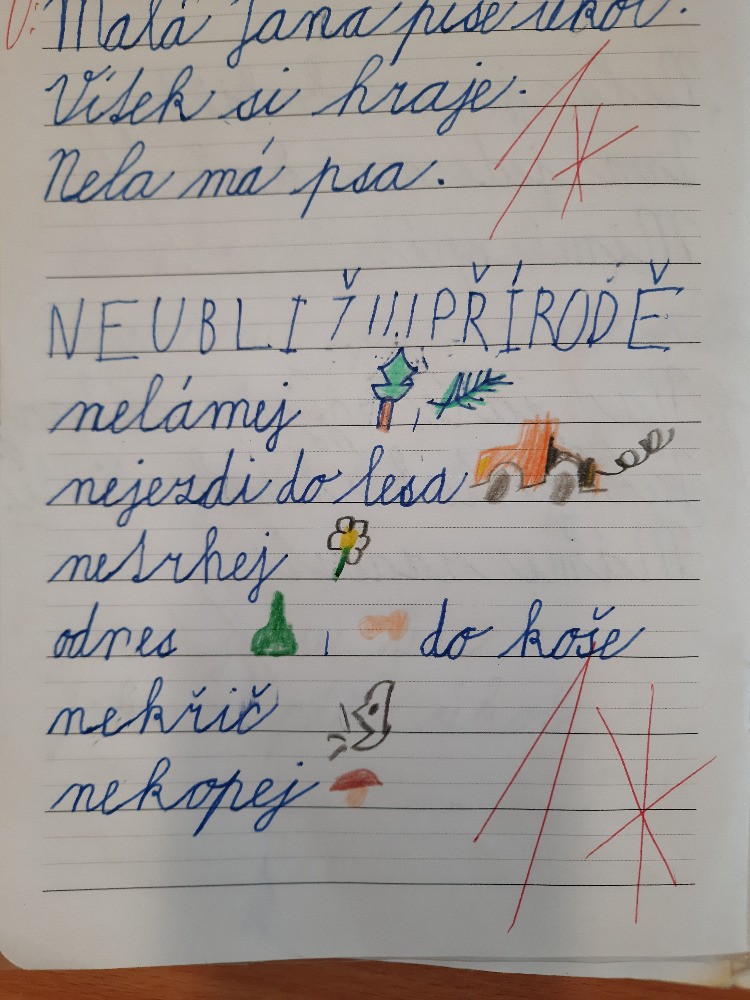 Malá Jana píše úkol.
Víšek si hraje.
Nela má psa.
NEUBLIŽ!!!PŘÍRODĚ
nelámej ,
nejezdi do lesa
netrhej
odnes , do koše
nekřič
nekopej